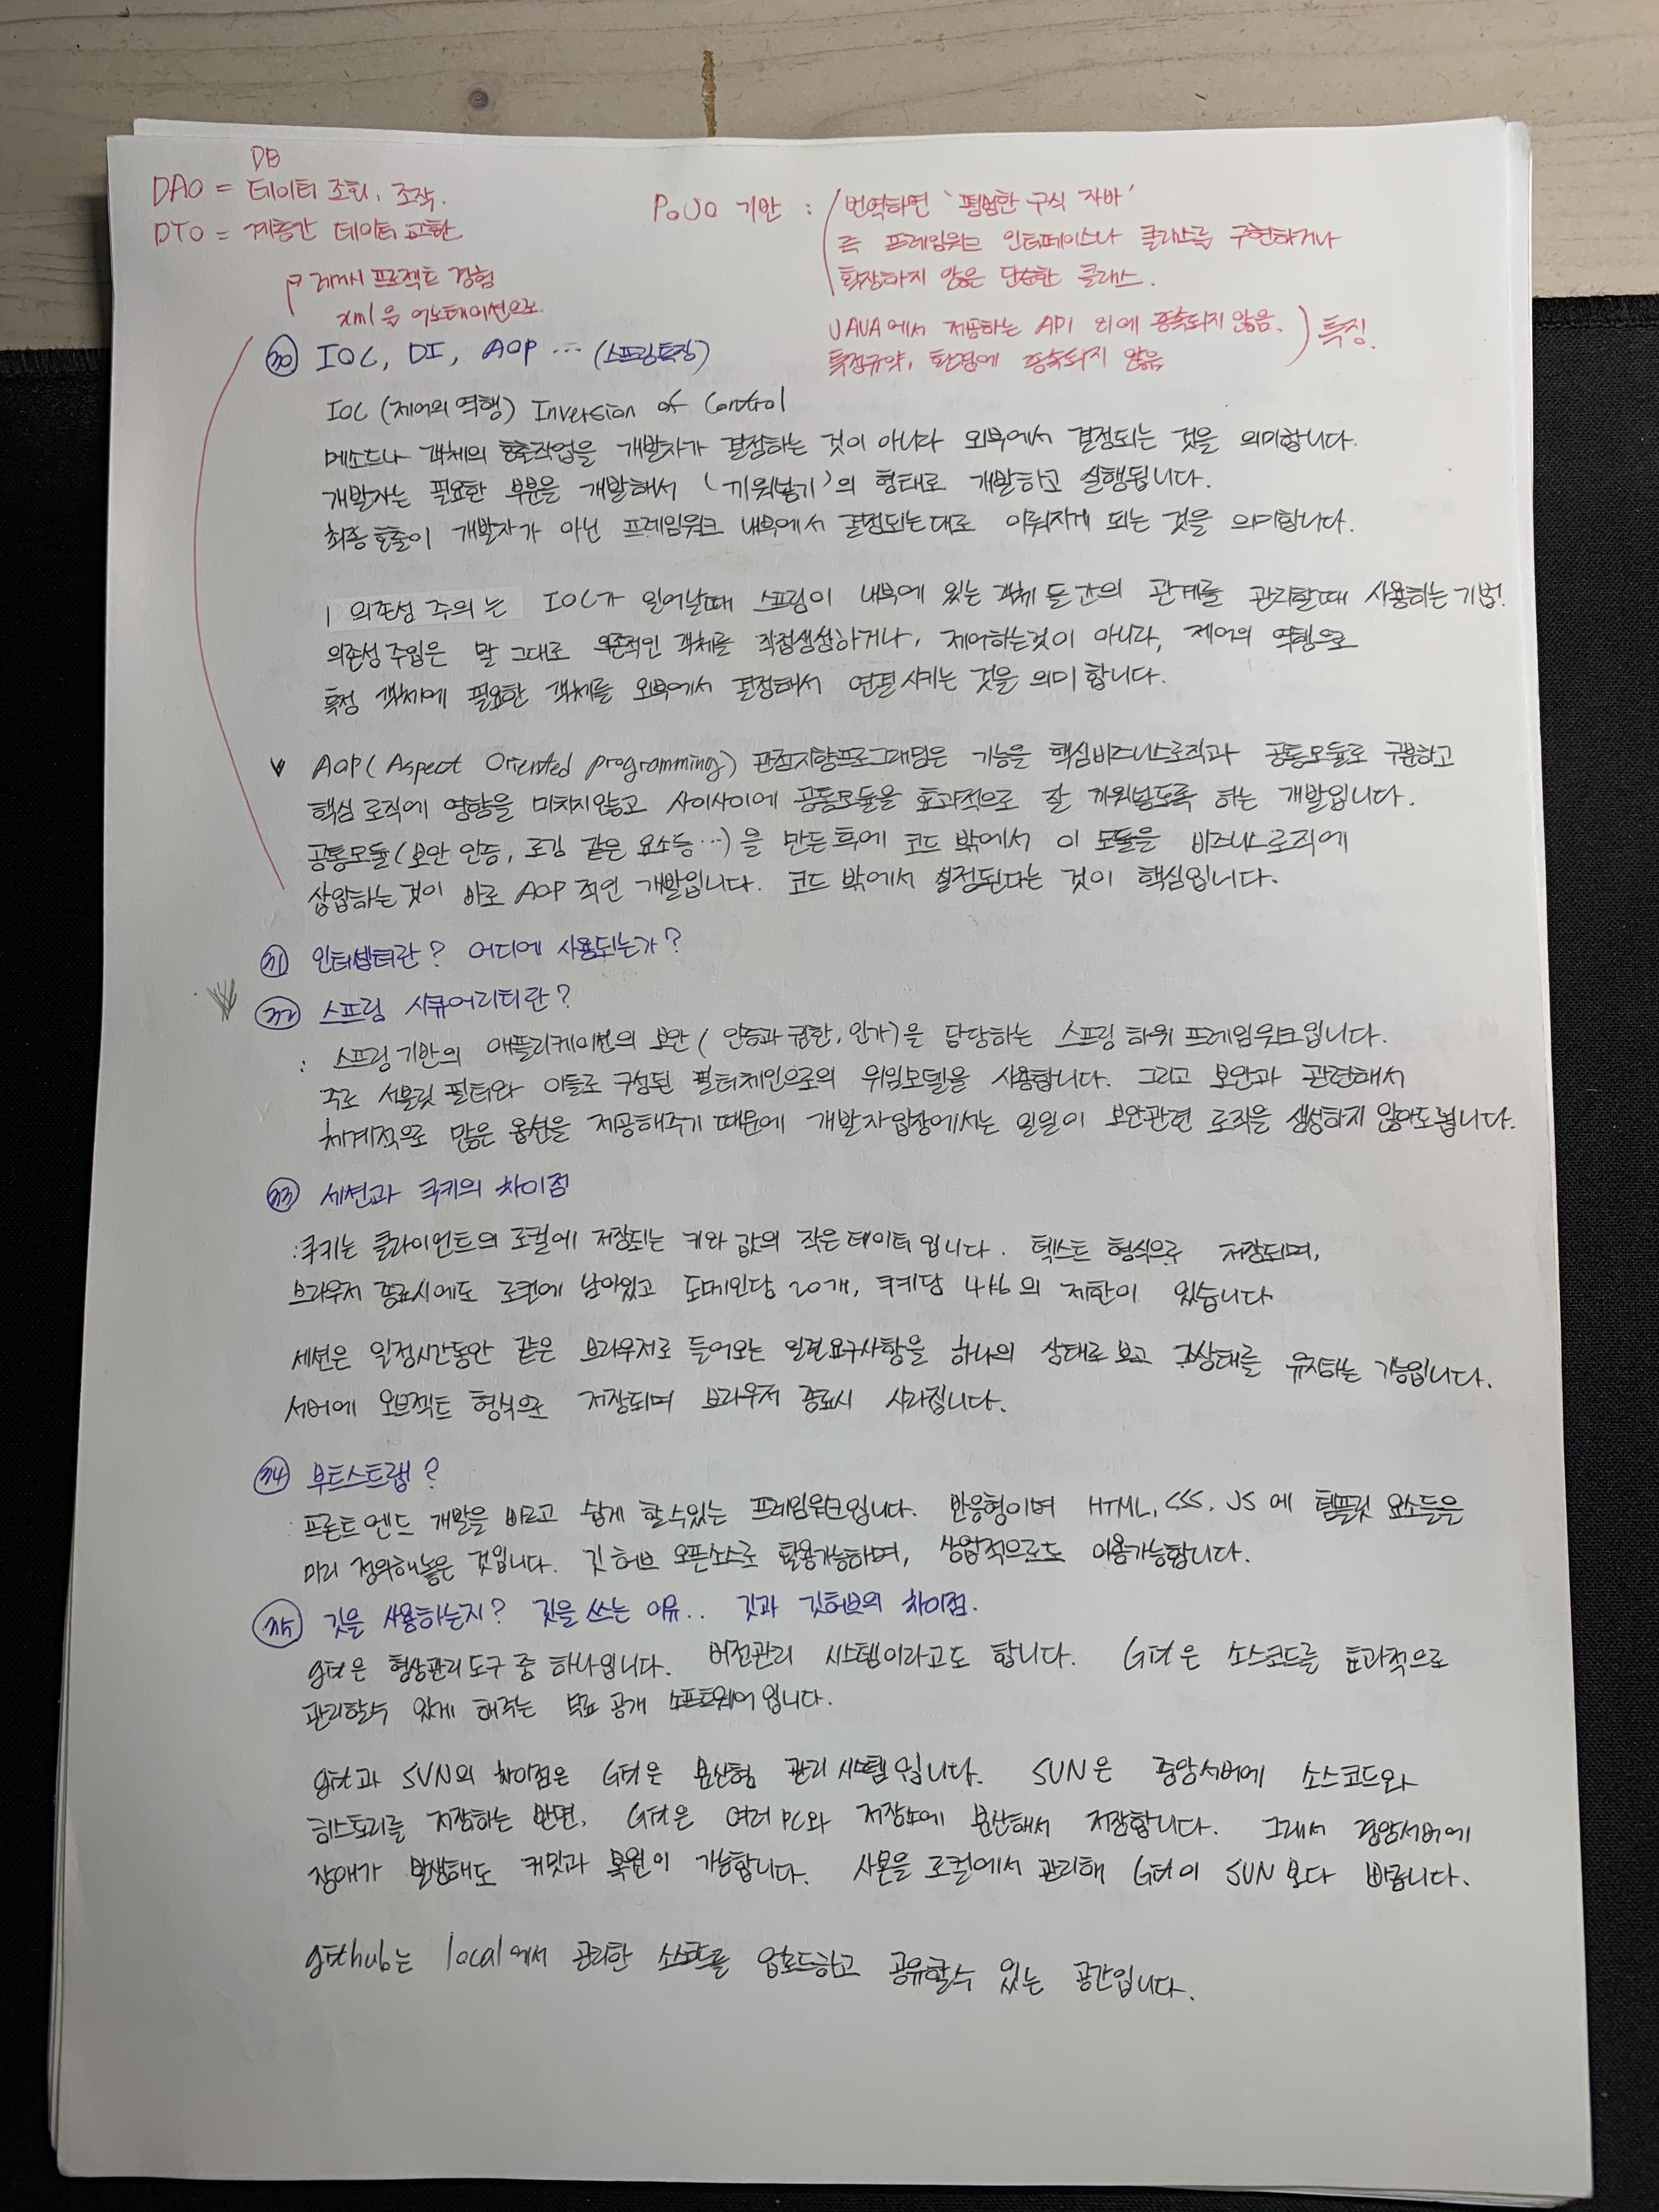 DB
DAO = 데이터 조회, 조작.
DTO = 계층간 데이터 교환
프로젝트 경험
xml을 어노테이션으로
POJO 기반 : 번역하면 '평범한 구식 자바'
즉 프레임워크 인터페이스나 클래스를 구현하거나
확장하지 않은 단순한 클래스.
JAVA에서 제공하는 API 외에 종속되지 않음.
특정규약, 환경에 종속되지 않음
특징.
30 IOC, DI, AOP … (스프링특징)
IOC (제어의 역행) Inversion of Control
메소드나 객체의 호출작업을 개발자가 결정하는 것이 아니라 외부에서 결정되는 것을 의미합니다.
개발자는 필요한 부분을 개발해서 '끼워넣기'의 형태로 개발하고 실행됩니다.
최종호출이 개발자가 아닌 프레임워크 내부에서 결정되는대로 이뤄지게 되는 것을 의미합니다.
의존성 주의는 IOC가 일어날때 스프링이 내부에 있는 객체들간의 관계를 관리할때 사용하는 기법.
의존성 주입은 말 그대로 의존적인 객체를 직접생성하거나, 제어하는것이 아니라, 제어의 역행으로
특정 객체에 필요한 객체를 외부에서 결정해서 연결시키는 것을 의미 합니다.
AOP( Aspect Oriented programming) 관점지향프로그래밍은 기능을 핵심비즈니스로직과 공통모듈로 구분하고
핵심 로직에 영향을 미치지않고 사이사이에 공통모듈을 효과적으로 잘 끼워넣도록 하는 개발입니다.
공통모듈(보안 인증, 로깅 같은 요소등…)을 만든후에 코드 밖에서 이 모듈을 비즈니스로직에
삽입하는 것이 바로 AOP 적인 개발입니다. 코드 밖에서 설정된다는 것이 핵심입니다.
31 인터셉터란? 어디에 사용되는가?
32 스프링 시큐어리티란?
: 스프링 기반의 애플리케이션의 보안( 인증과 권한, 인가)을 담당하는 스프링 하위 프레임워크입니다.
주로 서블릿 필터와 이들로 구성된 필터체인으로의 위임모델을 사용합니다. 그리고 보안과 관련해서
체계적으로 많은 옵션을 제공해주기 때문에 개발자입장에서는 일일이 보안관련 로직을 생성하지 않아도됩니다.
33 세션과 쿠키의 차이점
: 쿠키는 클라이언트의 로컬에 저장되는 키와 값의 작은 데이터 입니다. 텍스트 형식으로 저장되며,
브라우저 종료시에도 로컬에 남아있고 도메인당 20개, 쿠키당 4kb의 제한이 있습니다
세션은 일정시간동안 같은 브라우저로 들어오는 일련요구사항을 하나의 상태로 보고 그상태를 유지하는 기능입니다.
서버에 오브젝트 형식으로 저장되며 브라우저 종료시 사라집니다.
34 부트스트랩?
: 프론트 엔드 개발을 빠르고 쉽게 할수있는 프레임워크입니다. 반응형이며 HTML, CSS, JS 에 템플릿 요소들을
미리 정의해놓은 것입니다. 깃 허브 오픈소스로 활용가능하며, 상업적으로도 이용가능합니다.
35 깃을 사용하는지? 깃을 쓰는 이유.. 깃과 깃허브의 차이점.
git은 형상관리 도구 중 하나입니다. 버전관리 시스템이라고도 합니다. Git은 소스코드를 효과적으로
관리할수 있게 해주는 무료 공개 소프트웨어 입니다.
git과 SVN의 차이점은 Git은 분산형 관리 시스템입니다. SVN은 중앙서버에 소스코드와
히스토리를 저장하는 반면, Git은 여러 PC와 저장소에 분산해서 저장합니다. 그래서 중앙서버에
장애가 발생해도 커밋과 복원이 가능합니다. 사본을 로컬에서 관리해 Git이 SVN 보다 빠릅니다.
github는 local에서 관리한 소스코드를 업로드하고 공유할수 있는 공간입니다.